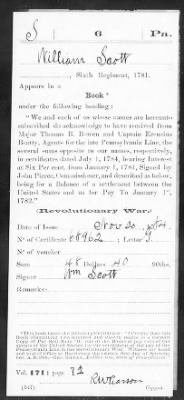 S 6 Pa.
William Scott
, Sixth Regiment, 1781.
Appears in a
Book*
under the following heading:
"We and each of us whose names are hereunto
subscribed do acknowledge to have received from
Major Thomas B. Bowen and Captain Erasmus
Beatty, Agents for the late Pennsylvania Line, the
several sums opposite to our names, respectively,
in certificates dated July 1, 1784, bearing Interest
at Six Per cent. from January 1, 1781, Signed by
John Pierce, Commissioner, and described as below,
being for a Balance of a settlement between the
United States and us for Pay To January 1st,
1782."
(Revolutionary War.)
Date of Issue Nov 20, 1784
No of Certificate 68962 ; Letter
No of voucher
Sum 48 Dollars 40 90ths.
Signer Wm Scott
Remarks:
Vol. 171; page 72
(547) Copyist.